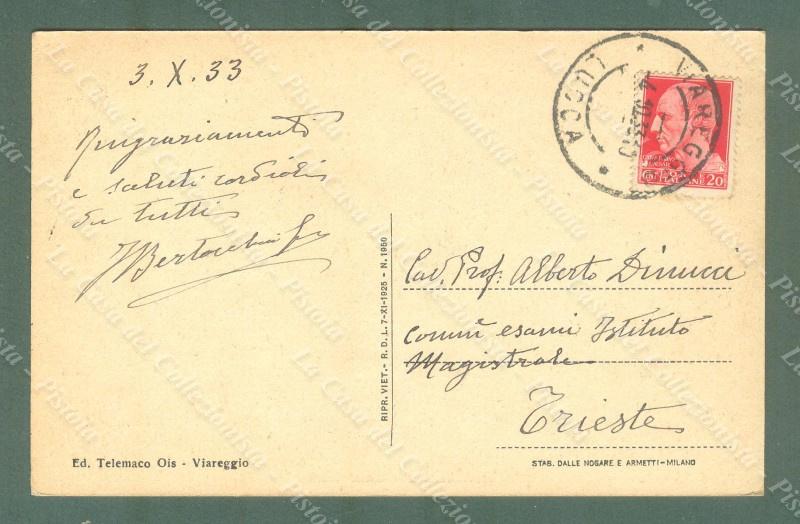 3. X. 33
Ringraziamenti
e saluti cordiali
da tutti
Bertocchi
VIAREGGIO
LUCCA
POSTE ITALIANE
CENT 20
Cav. Prof. Alberto Dinucci
Comm esami Istituto
Magistrale
Trieste
RIPR. VIET. - R. D. L. 7-XI-1925 - N. 1950
Ed. Telemaco Ois - Viareggio
STAB. DALLE NOGARE E ARMETTI-MILANO
La Casa del Collezionista - Pistoia